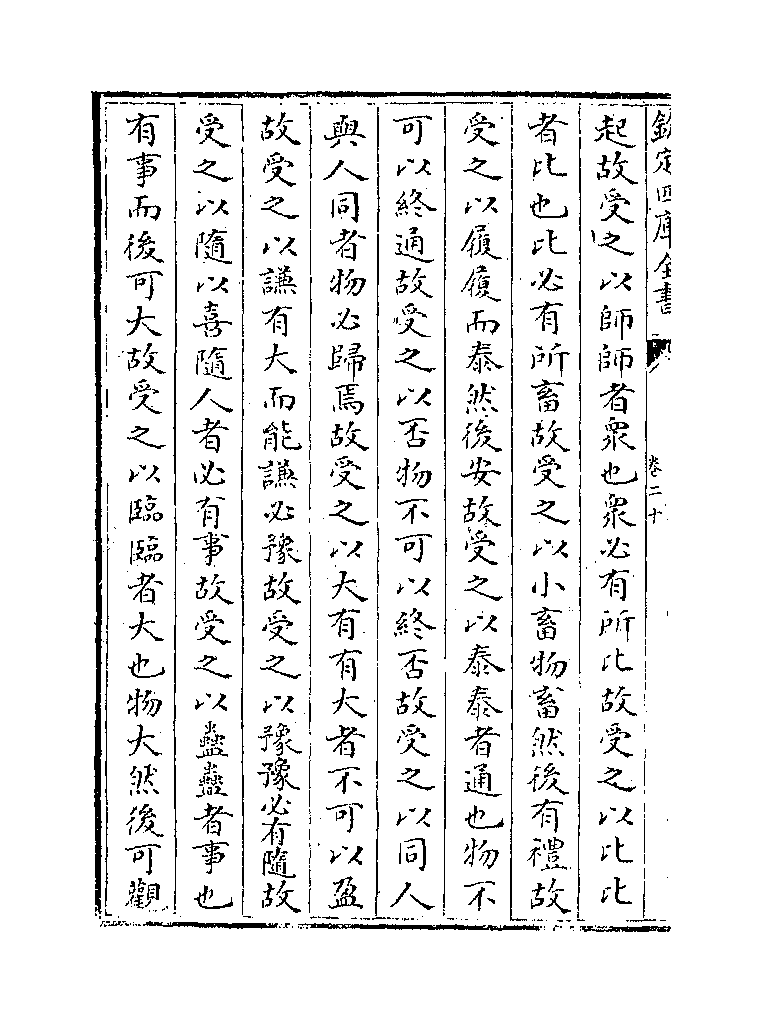 欽定四庫全書
卷二十
起故受之以師師者衆也衆必有所比故受之以比比
者比也比必有所畜故受之以小畜物畜然後有禮故
受之以履履而泰然後安故受之以泰泰者通也物不
可以終通故受之以否物不可以終否故受之以同人
與人同者物必歸焉故受之以大有有大者不可以盈
故受之以謙有大而能謙必豫故受之以豫豫必有隨故
受之以隨以喜隨人者必有事故受之以蠱蠱者事也
有事而後可大故受之以臨臨者大也物大然後可觀